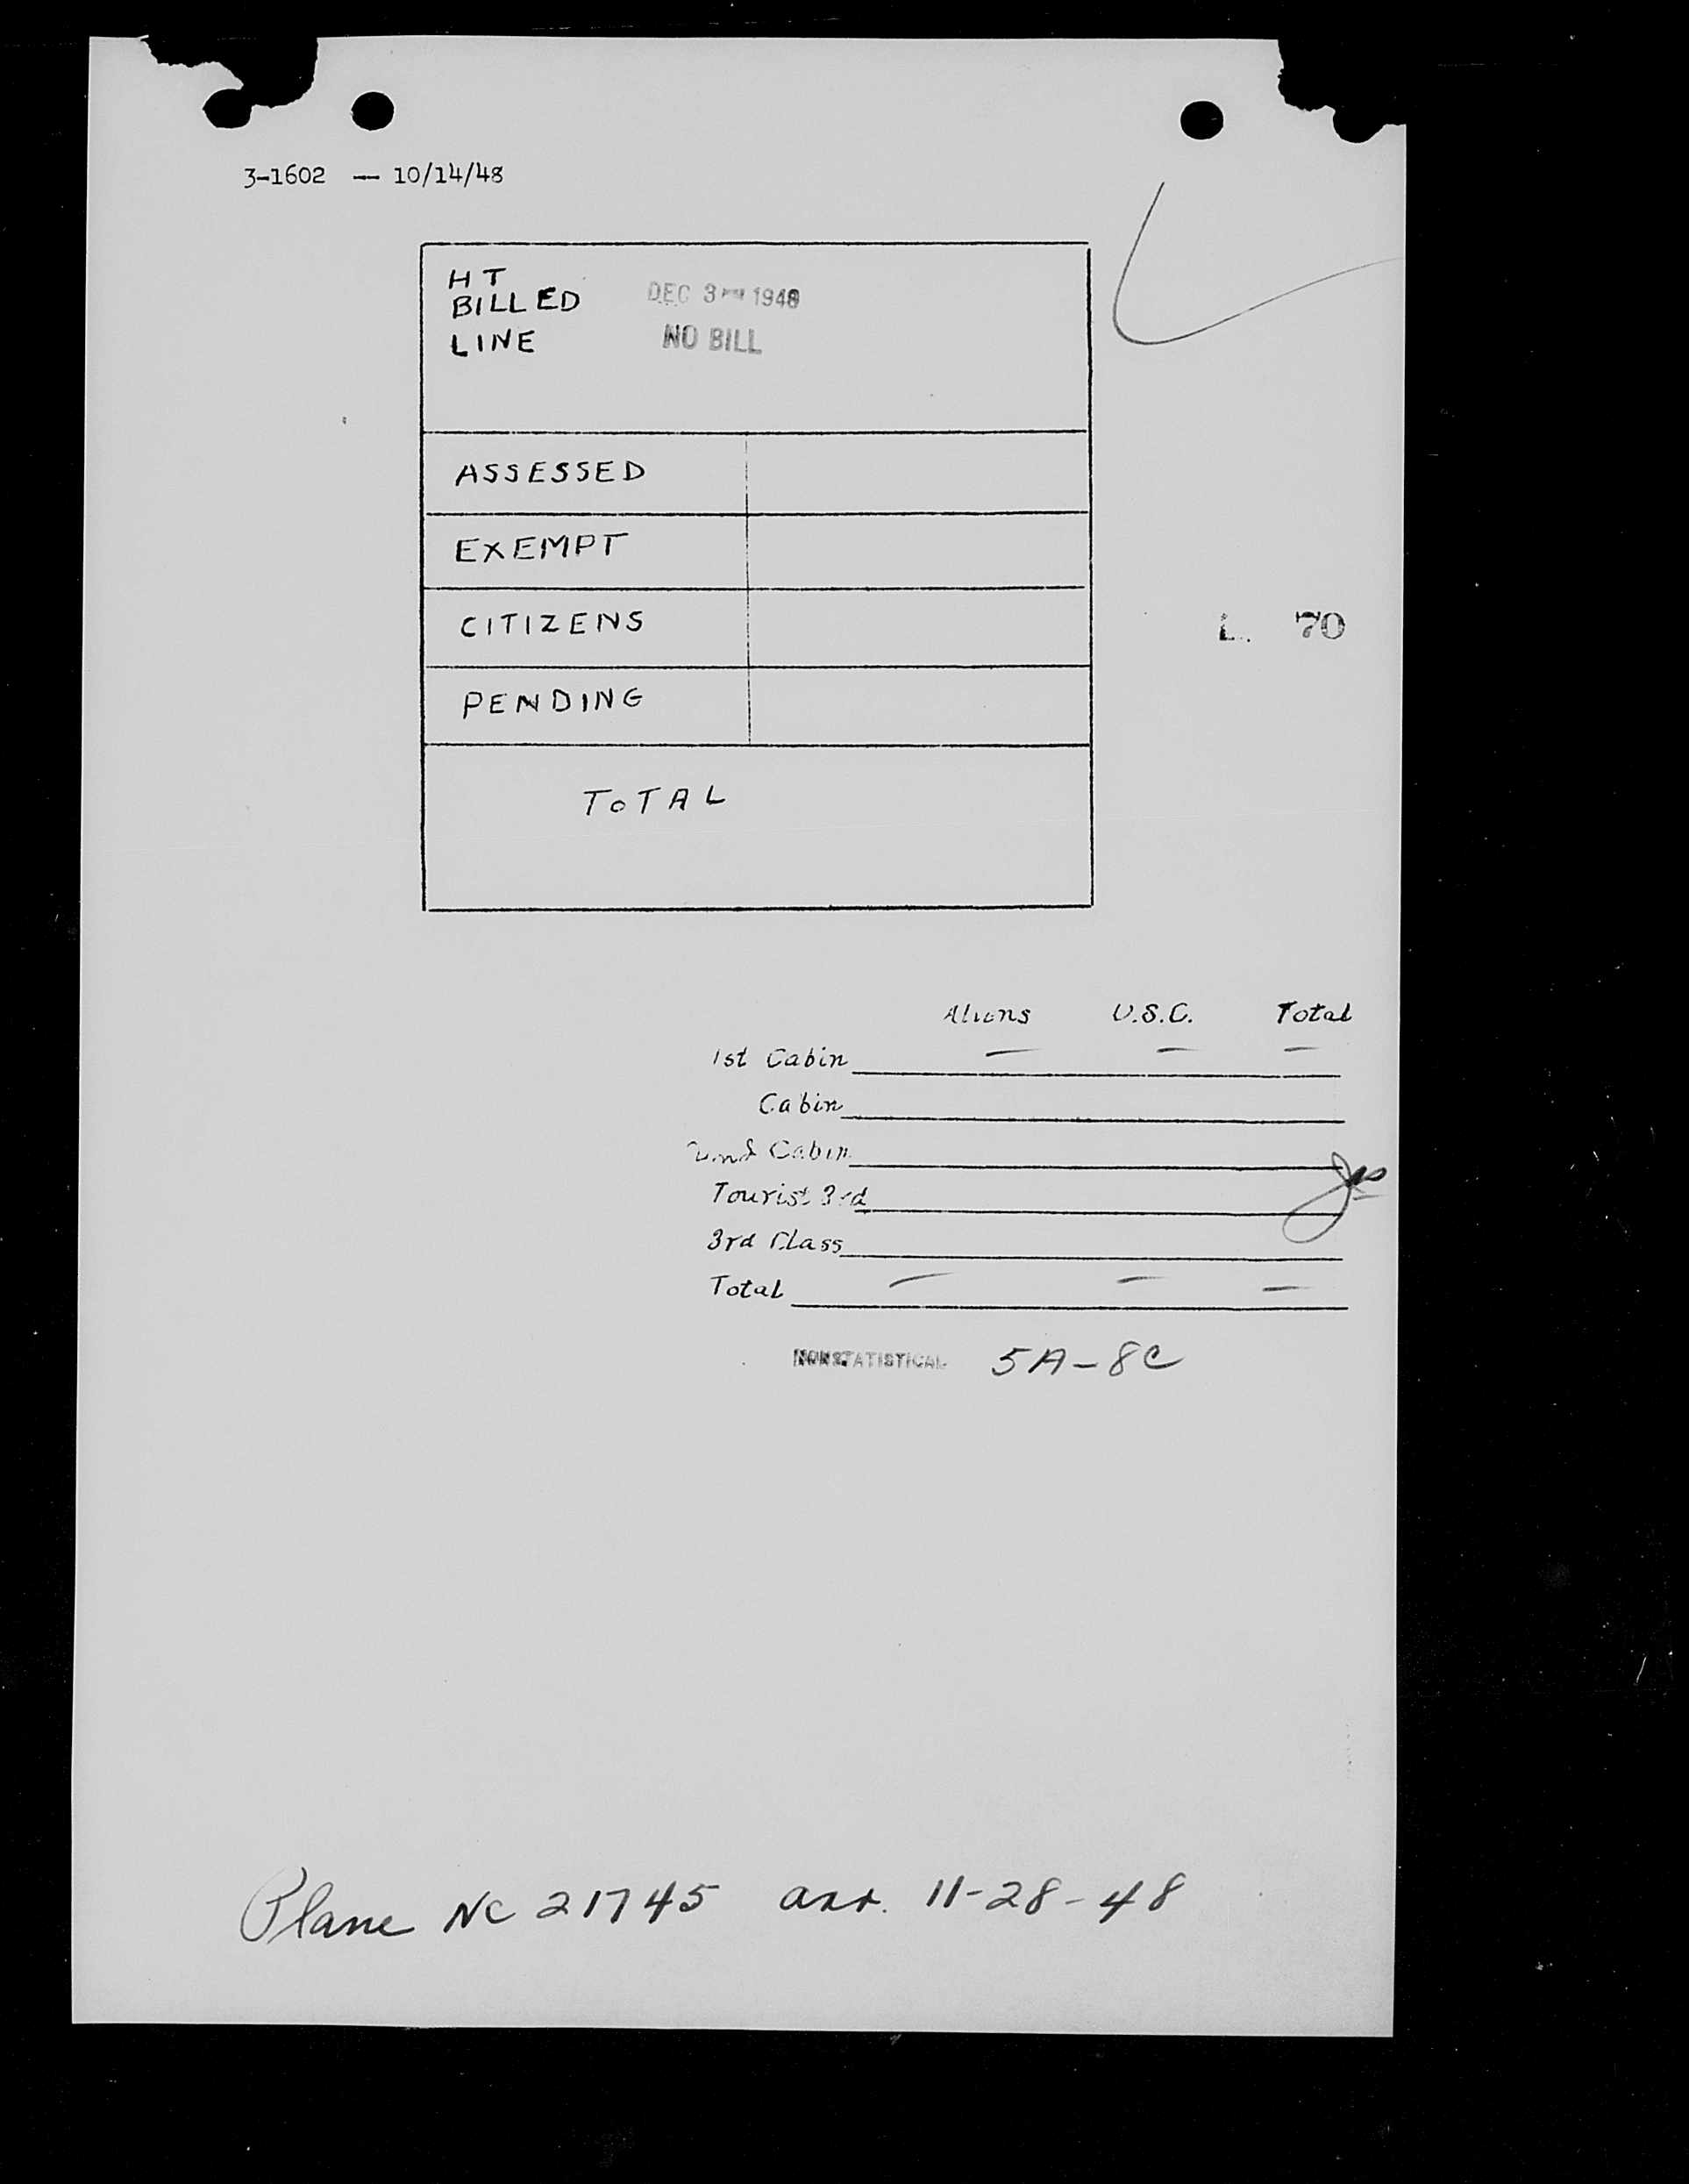 3-1602 — 10/14/48
HT
BILLED DEC 3 1948
LINE NO BILL
ASSESSED
EXEMPT
CITIZENS
L. 70
PENDING
TOTAL
Aliens U.S.C. Total
1st Cabin — — —
Cabin
2nd Cabin
Tourist 3rd
3rd Class
Total — — —
NONSTATISTICAL 5A-8C
Plane NC 21745 arr. 11-28-48